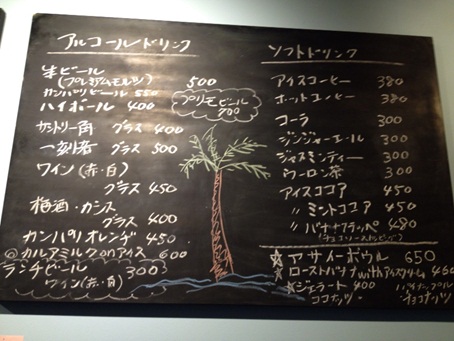 アルコールドリンク
生ビール
(プレミアムモルツ) 500
カンパリビール 550
ハイボール 400
プリモビール
700
サントリー角 グラス 400
一刻者 グラス 500
ワイン(赤・白)
グラス 450
梅酒・カシス
グラス 400
カンパリオレンヂ 450
◎カルアミルクonアイス 600
ランチビール 300
ワイン(赤・白)
ソフトドリンク
アイスコーヒー 380
ホットコーヒー 380
コーラ 300
ジンジャーエール 300
ジャスミンティー 300
ウーロン茶 300
アイスココア 450
〃 ミントココア 450
〃 バナナフラッペ 480
☆アサイーボウル 650
☆ローストバナナwithアイスクリーム 460
☆ジェラート 400 パイナップル
ココナッツ チョコナッツ